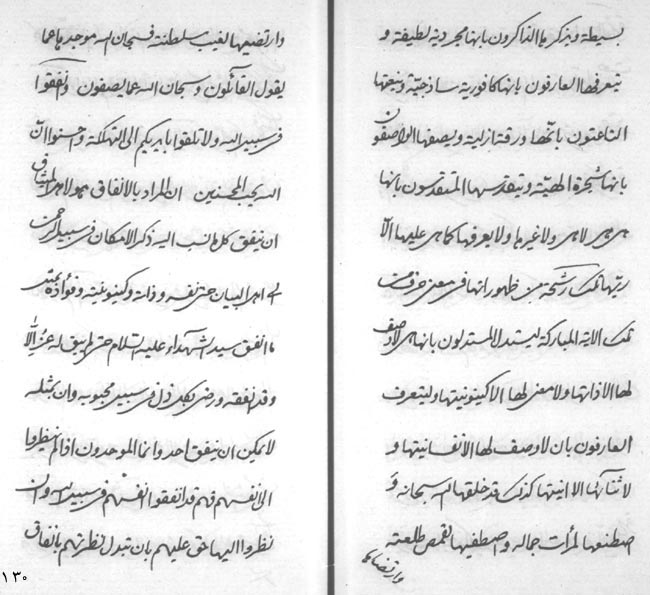 بسيطة ويذكرها الذاكرون بانها مجردية لطيفة و
يتعرفها العارفون بانها كافورية ساذجية وينعتها
الناعتون بانها ورقة ازلية ويصفها الواصفون
بانها شجرة الهية ويتقدسها المتقدسون بانها
هى هى لا هى ولا غيرها ولا يعرفها كما هى عليها الا
ربها تلك رشحة من ظهوراتها فى معنى حرف من
تلك الاية المباركة ليستدل المستدلون بانها هى لا وصف
لها الا ذاتها ولا معنى لها الا كينونيتها وليتعرف
العارفون بان لا وصف لها الا نفسانيتها و
لا ثناء لها الا انيتها كذلك قد خلقها الله سبحانه و
اصطنعها لمرات جماله واصطفيها لقمص طلعته
وارتضاها
وارتضيها لغيب سلطنته فسبحان الله موجدها عما
يقول القائلون وسبحان الله عما يصفون وانفقوا
فى سبيل الله ولا تلقوا بايديكم الى التهلكة واحسنوا ان
الله يحب المحسنين ان المراد بالانفاق هو لاهل الميثاق
ان ينفق كل ما نسب اليه ذكر الامكان فى سبيل الرحمن
اى اهل البيان حتى نفسه وذاته وكينونيته وفؤاده بمثل
ما انفق سيد الشهداء عليه السلام حتى لم يبق له عز الا
وقد انفقه ورضى بكل ذل فى سبيل محبوبه وان بمثله
لا يمكن ان ينفق احد وانما الموحدون اذا لم ينظروا
الى انفسهم فهم قد انفقوا انفسهم فى سبيل الله وان
نظروا اليها حق عليهم بان تبدل نظرتهم بانفاق
١٣٠